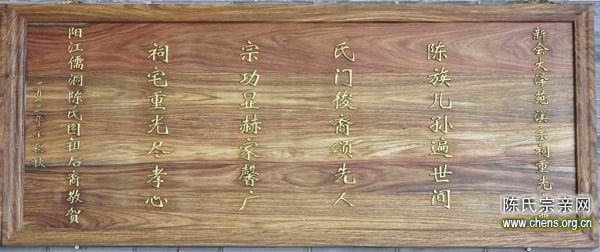 新会大泽苑溪宗祠重光
陈族儿孙遍世间
氏门俊裔颂先人
宗功显赫家馨广
祠宅重光尽孝心
阳江儒洞陈氏图祖后裔敬贺
陈氏宗亲网
www.chens.org.cn